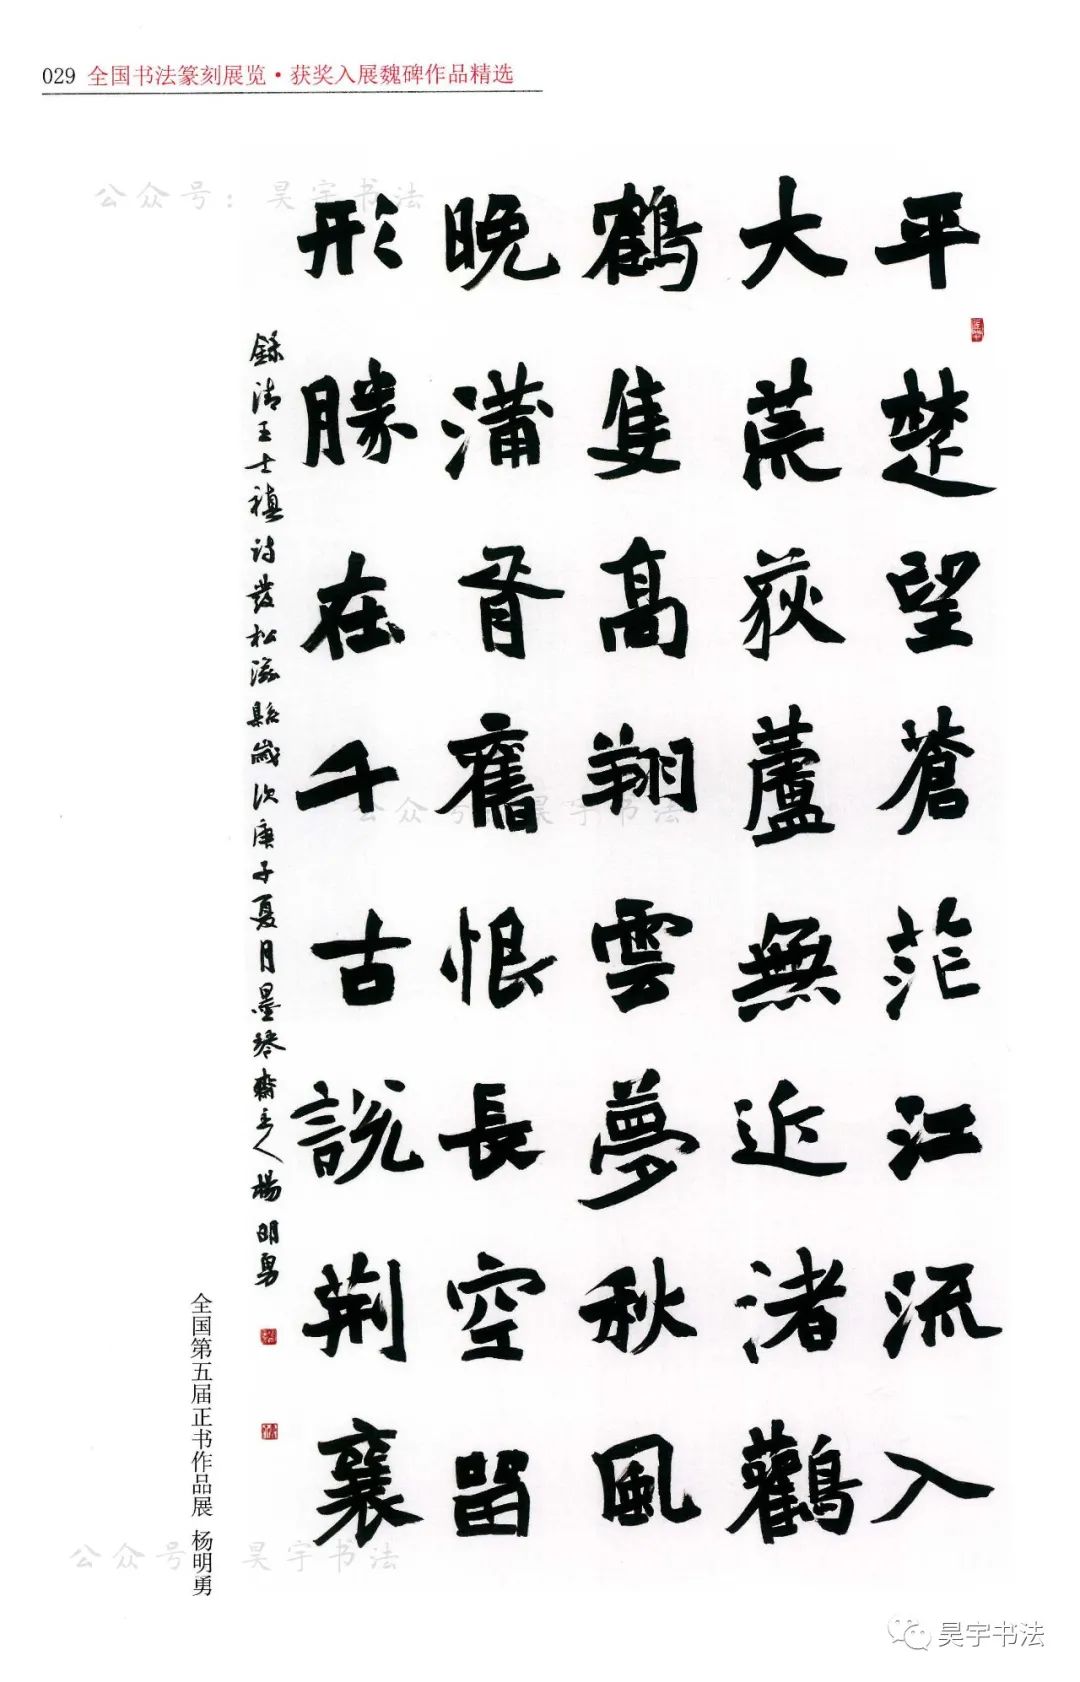 029 全国书法篆刻展览·获奖入展魏碑作品精选
平楚望蒼茫江流入
大荒荻蘆無近渚鸛
鶴隻高翔雲夢秋風
晚蒲胥舊恨長空留
形勝在千古説荊襄
錄清王士禛詩發松滋縣歲次庚子夏月墨琴齋主人楊明勇
全国第五届正书作品展 杨明勇
公众号：昊宇书法
公众号 昊宇书法
公众号 昊宇书法
昊宇书法